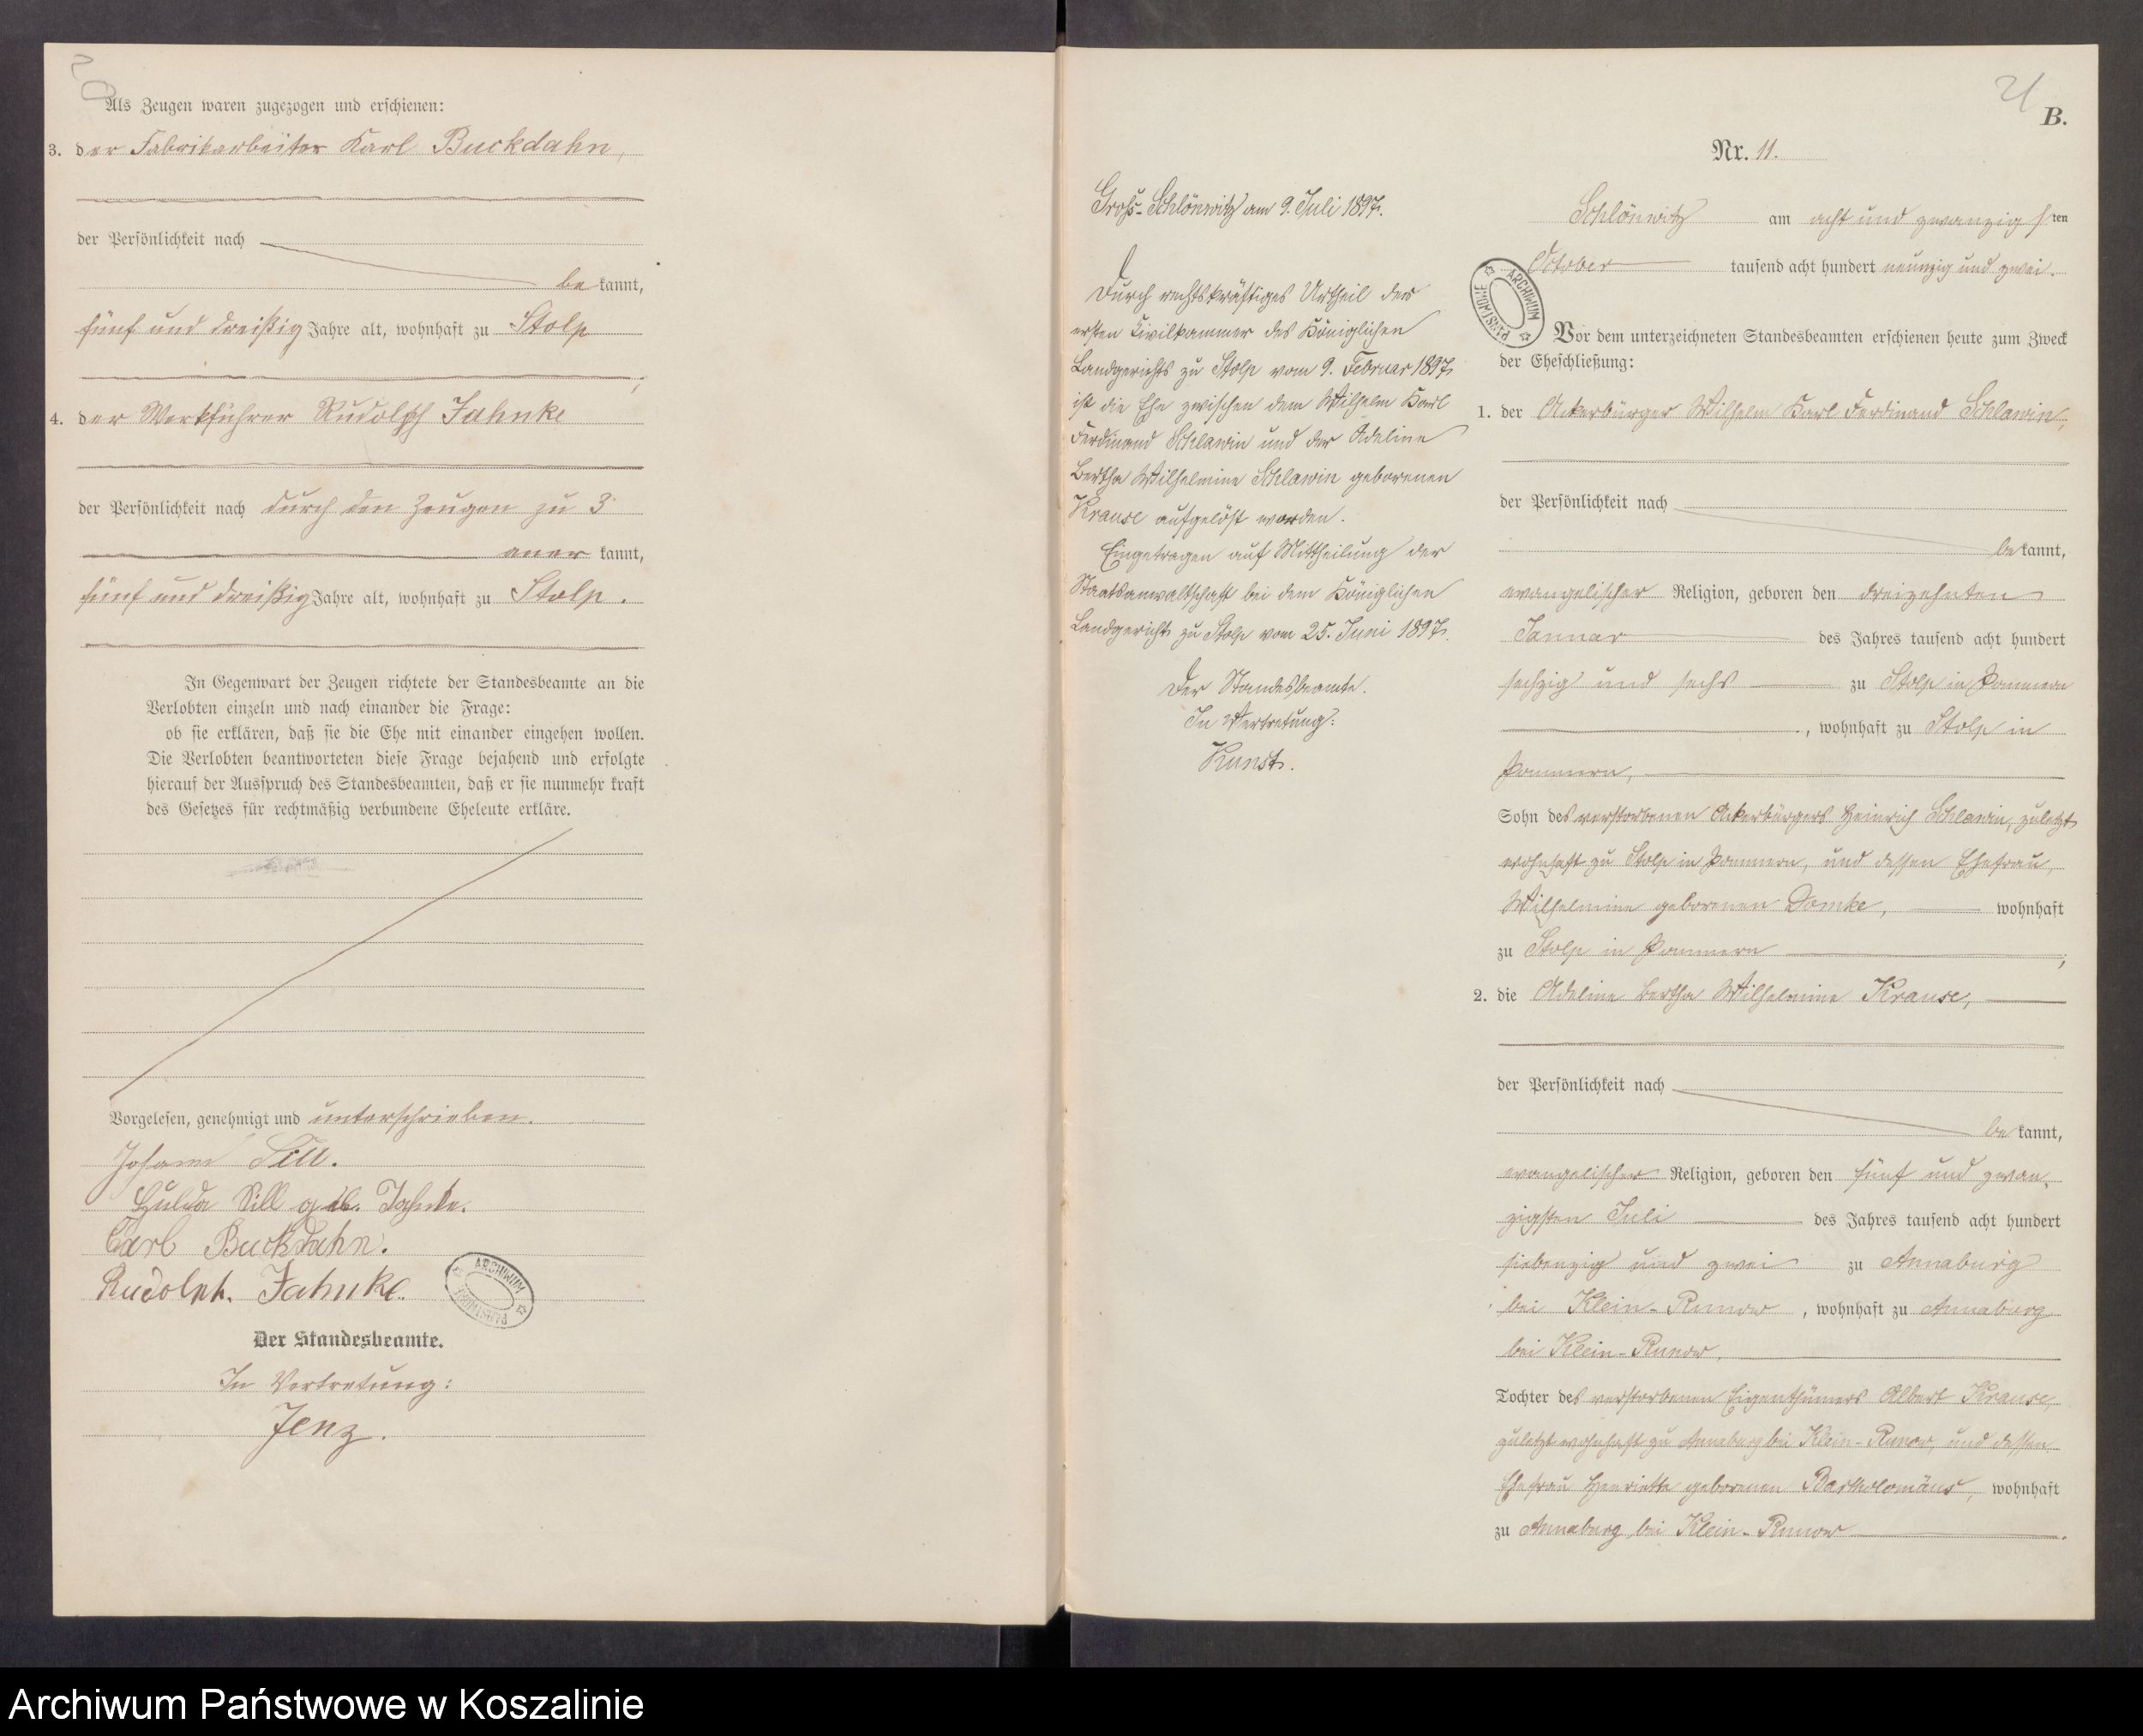 20
Als Zeugen waren zugezogen und erschienen:
3. der Fabrikarbeiter Karl Buckdahn,
der Persönlichkeit nach
be kannt,
fünf und dreißig Jahre alt, wohnhaft zu Stolp
4. der Werkführer Rudolph Jahnke
der Persönlichkeit nach durch den Zeugen zu 3
aner kannt,
fünf und dreißig Jahre alt, wohnhaft zu Stolp.
In Gegenwart der Zeugen richtete der Standesbeamte an die
Verlobten einzeln und nach einander die Frage:
ob sie erklären, daß sie die Ehe mit einander eingehen wollen.
Die Verlobten beantworteten diese Frage bejahend und erfolgte
hierauf der Ausspruch des Standesbeamten, daß er sie nunmehr kraft
des Gesetzes für rechtmäßig verbundene Eheleute erkläre.
Vorgelesen, genehmigt und unterschrieben.
Johann Sill.
Hulda Sill geb. Jahnke.
Carl Buckdahn.
Rudolph. Jahnke.
ARCHIWUM PAŃSTWOWE
Der Standesbeamte.
In Vertretung:
Jenz.
21
B.
Nr. 11.
Groß-Schlönwitz am 9. Juli 1897.
Durch rechtskräftiges Urtheil der
ersten Civilkammer des Königlichen
Landgerichts zu Stolp vom 9. Februar 1897
ist die Ehe zwischen dem Wilhelm Karl
Ferdinand Schlawin und der Adeline
Bertha Wilhelmine Schlawin geborenen
Krause aufgelöst worden.
Eingetragen auf Mittheilung der
Staatsanwaltschaft bei dem Königlichen
Landgericht zu Stolp vom 25. Juni 1897.
Der Standesbeamte.
In Vertretung:
Kunst.
Schlönwitz am acht und zwanzigsten
October tausend acht hundert neunzig und zwei.
ARCHIWUM PAŃSTWOWE
Vor dem unterzeichneten Standesbeamten erschienen heute zum Zweck
der Eheschließung:
1. der Ackerbürger Wilhelm Karl Ferdinand Schlawin,
der Persönlichkeit nach
be kannt,
evangelischer Religion, geboren den dreizehnten
Januar des Jahres tausend acht hundert
sechzig und sechs zu Stolp in Pommern
, wohnhaft zu Stolp in
Pommern,
Sohn des verstorbenen Ackerbürgers Heinrich Schlawin, zuletzt
wohnhaft zu Stolp in Pommern, und dessen Ehefrau,
Wilhelmine geborenen Domke, wohnhaft
zu Stolp in Pommern ;
2. die Adeline Bertha Wilhelmine Krause,
der Persönlichkeit nach
be kannt,
evangelischer Religion, geboren den fünf und zwan-
zigsten Juli des Jahres tausend acht hundert
siebenzig und zwei zu Annaburg
bei Klein-Runow , wohnhaft zu Annaburg
bei Klein-Runow,
Tochter des verstorbenen Eigenthümers Albert Krause,
zuletzt wohnhaft zu Annaburg bei Klein-Runow, und dessen
Ehefrau Henriette geborenen Bartholomäus, wohnhaft
zu Annaburg bei Klein-Runow .
Archiwum Państwowe w Koszalinie